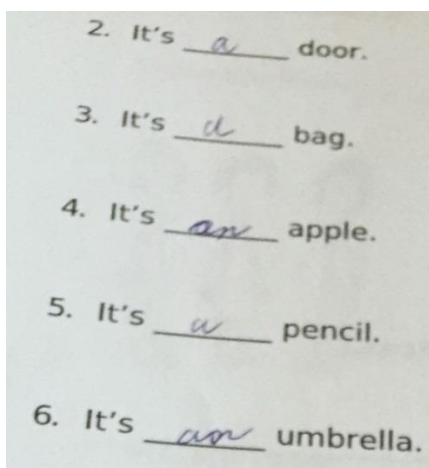 2. It's a door.
3. It's a bag.
4. It's an apple.
5. It's a pencil.
6. It's an umbrella.